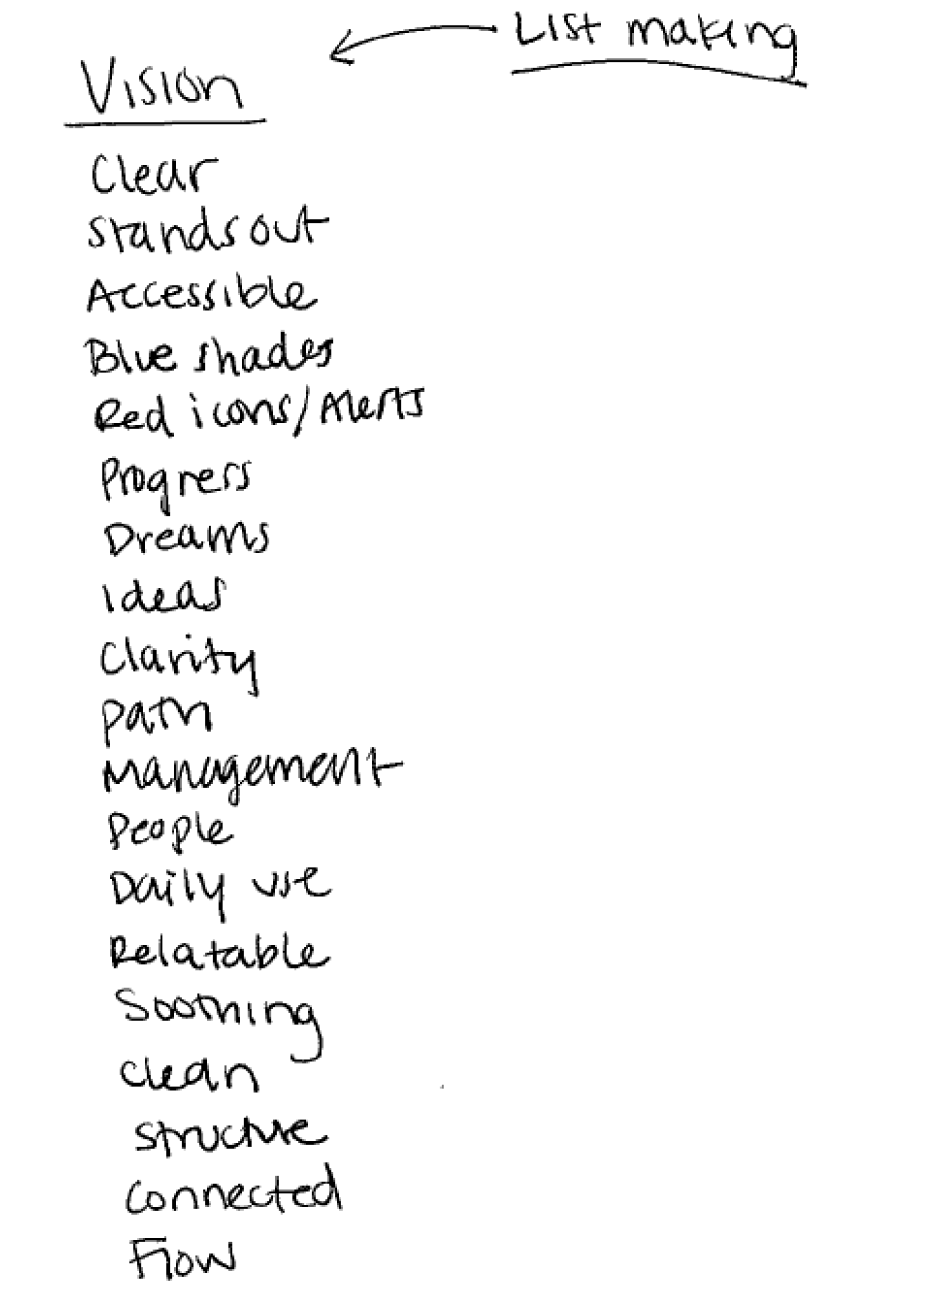 List making
Vision
Clear
Stands out
Accessible
Blue shades
Red icons/Alerts
Progress
Dreams
Ideas
Clarity
Path
Management
People
Daily use
Relatable
Soothing
Clean
Structure
Connected
Flow